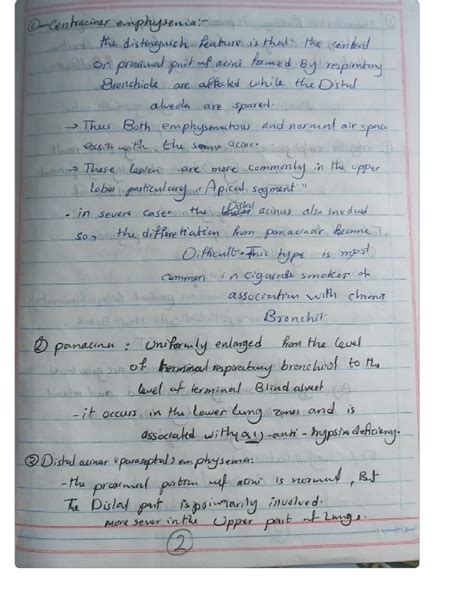 ①- Centriaciner emphysemia:-
the distinguish feature is that the central
or proximal part of acini formed By respiratory
Bronchiole are affected while the Distal
alveola are spared.
→ Thus Both emphysematous and normal air space
with the same acinus.
→ These lesion are more commonly in the upper
Lobes particulary "Apical segment"
- in severe case the Distal acinus also involved
so, the differetiation from panacinar become
Difficult. This type is most
common in cigarate smokes
association with chronic
Bronchit.
② panaciner : Uniformly enlarged from the level
of terminal respiratory bronchiol to the
level of terminal Blind alveoli
- it occurs in the Lower Lung zones and is
associated with (α1)-anti-trypsin deficiency.
③ Distal acinar (paraseptal) emphysema:
- the proximal portion of acini is normal, But
The Distal part is primarily involved.
more sever in the Upper part of Lungs.
②